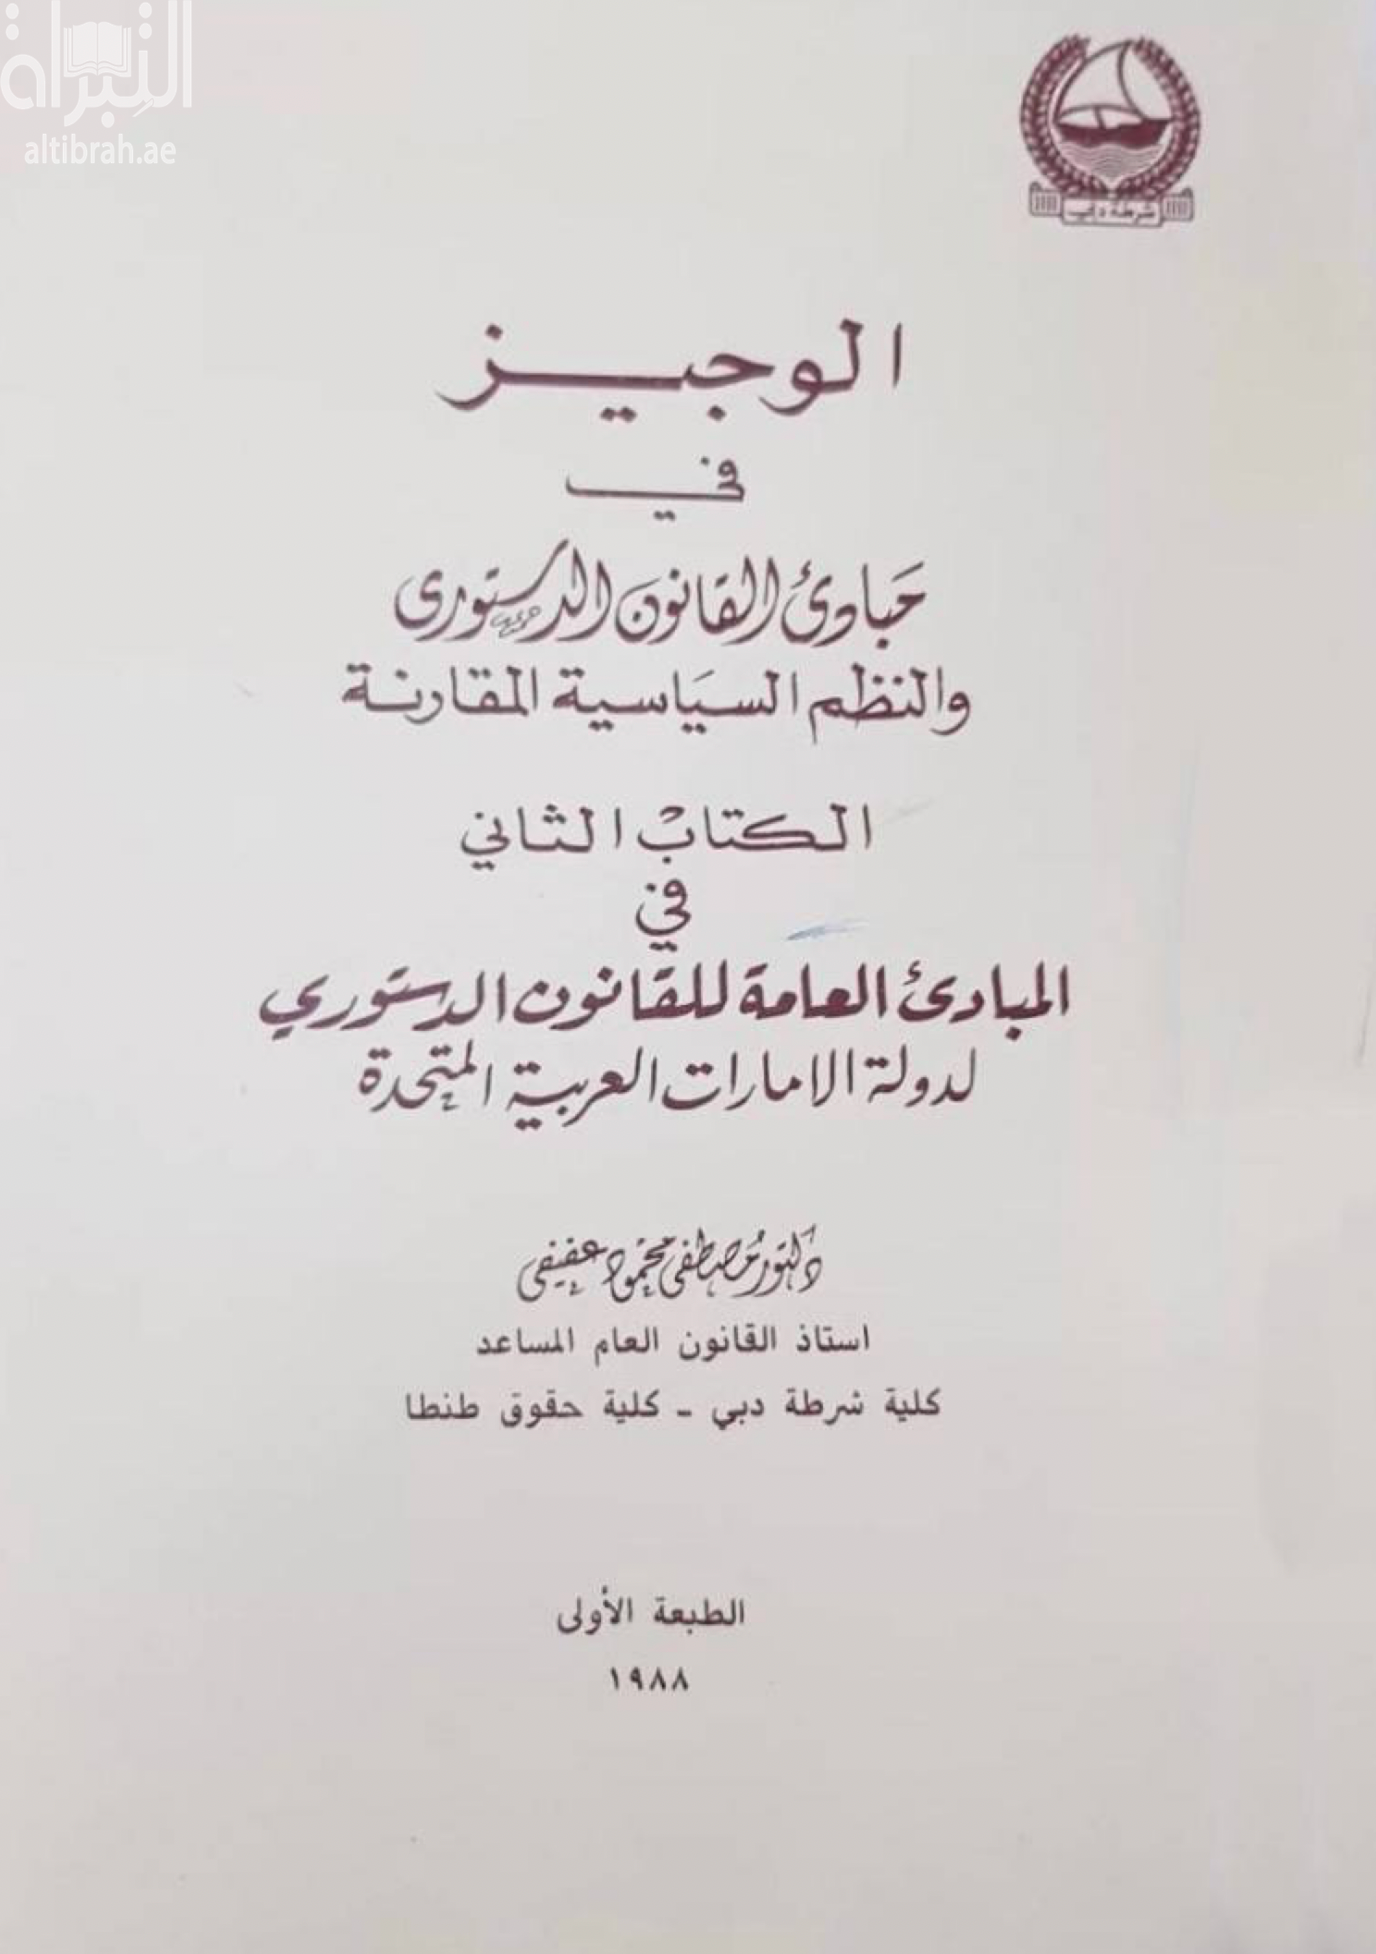 التبراة
altibrah.ae
شرطة دبي
الوجيز
في
مبادئ القانون الدستورى
والنظم السياسية المقارنة
الكتاب الثاني
في
المبادئ العامة للقانون الدستوري
لدولة الامارات العربية المتحدة
دكتور مصطفى محمود عفيفى
استاذ القانون العام المساعد
كلية شرطة دبي - كلية حقوق طنطا
الطبعة الأولى
١٩٨٨